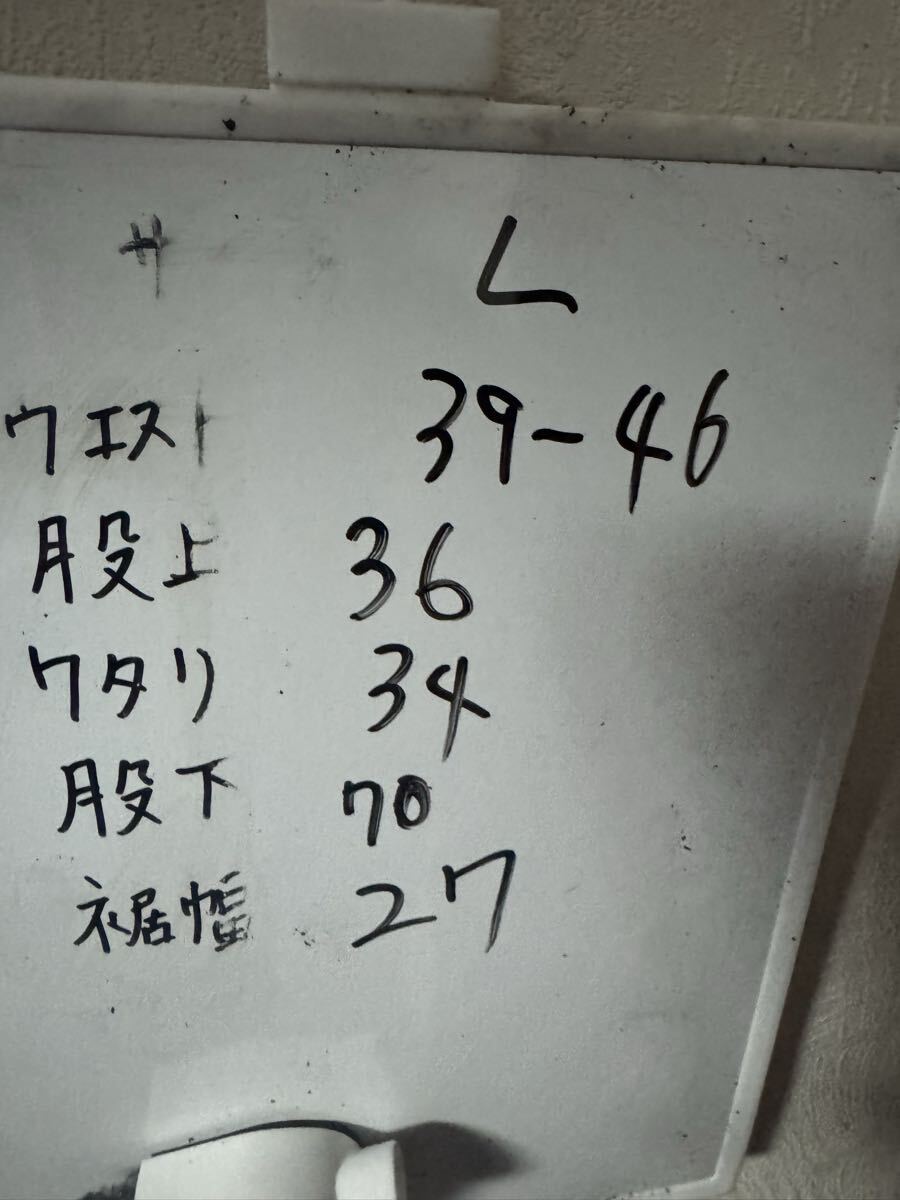 サ L
ウエスト 39-46
股上 36
ワタリ 34
股下 70
裾幅 27